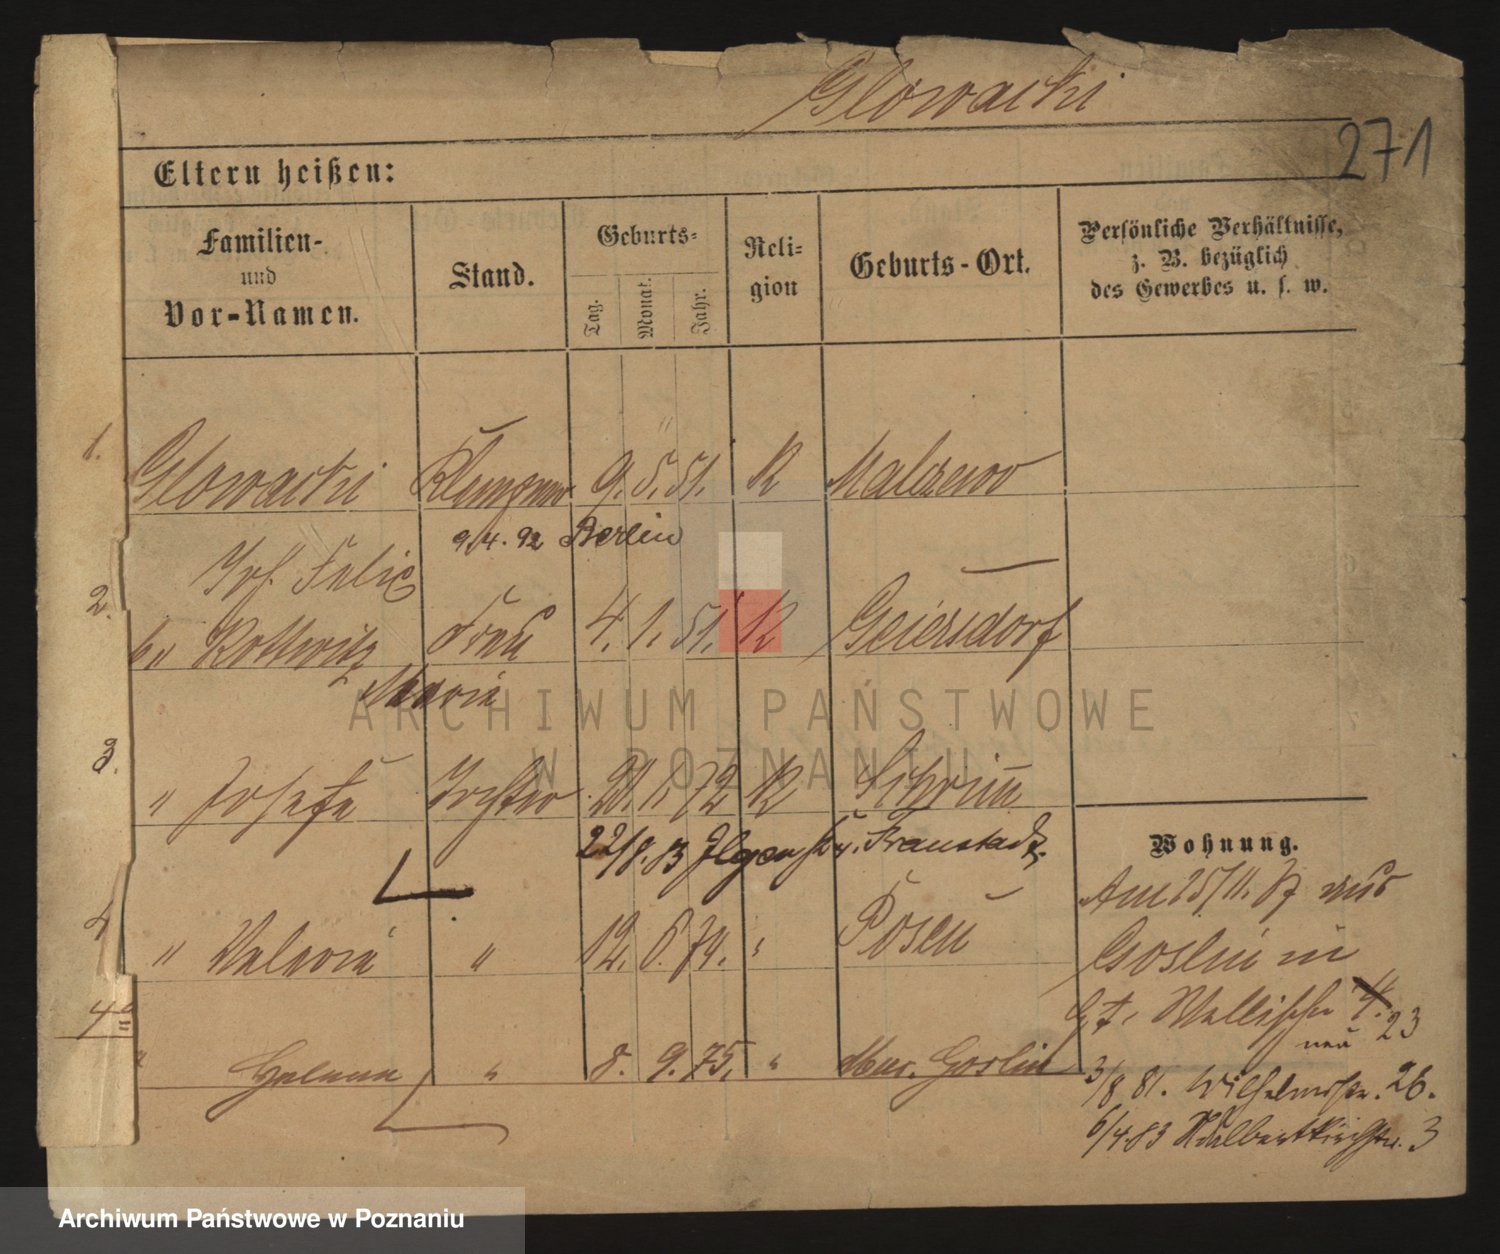 Glowacki
271
Eltern heißen:
Familien-
und
Vor-Namen.
Stand.
Geburts-
Tag.
Monat.
Jahr.
Reli-
gion
Geburts-Ort.
Persönliche Verhältnisse,
z. B. bezüglich
des Gewerbes u. s. w.
1. Glowacki Klempner 9. 5. 51. K Malczewo
9.4.92 Berlin
2.
Kottwitz Frau 4. 1. 51. K Geiersdorf
Maria
3. " Josefa Tochter 20. 1. 72 K Schrim
22/8. 83 Fraustadt.
Wohnung.
Am 25/11. 87 aus
4 " Valeria " 12. 6. 74. " Posen
Goslin in
Wallischei 4.
neu 23
4a " Helena " 8. 9. 75. " Mur. Goslin
3/8 81. Wilhelmstr. 26.
6/4.83 Adalbertkirchstr. 3
ARCHIWUM PAŃSTWOWE
W POZNANIU
Archiwum Państwowe w Poznaniu